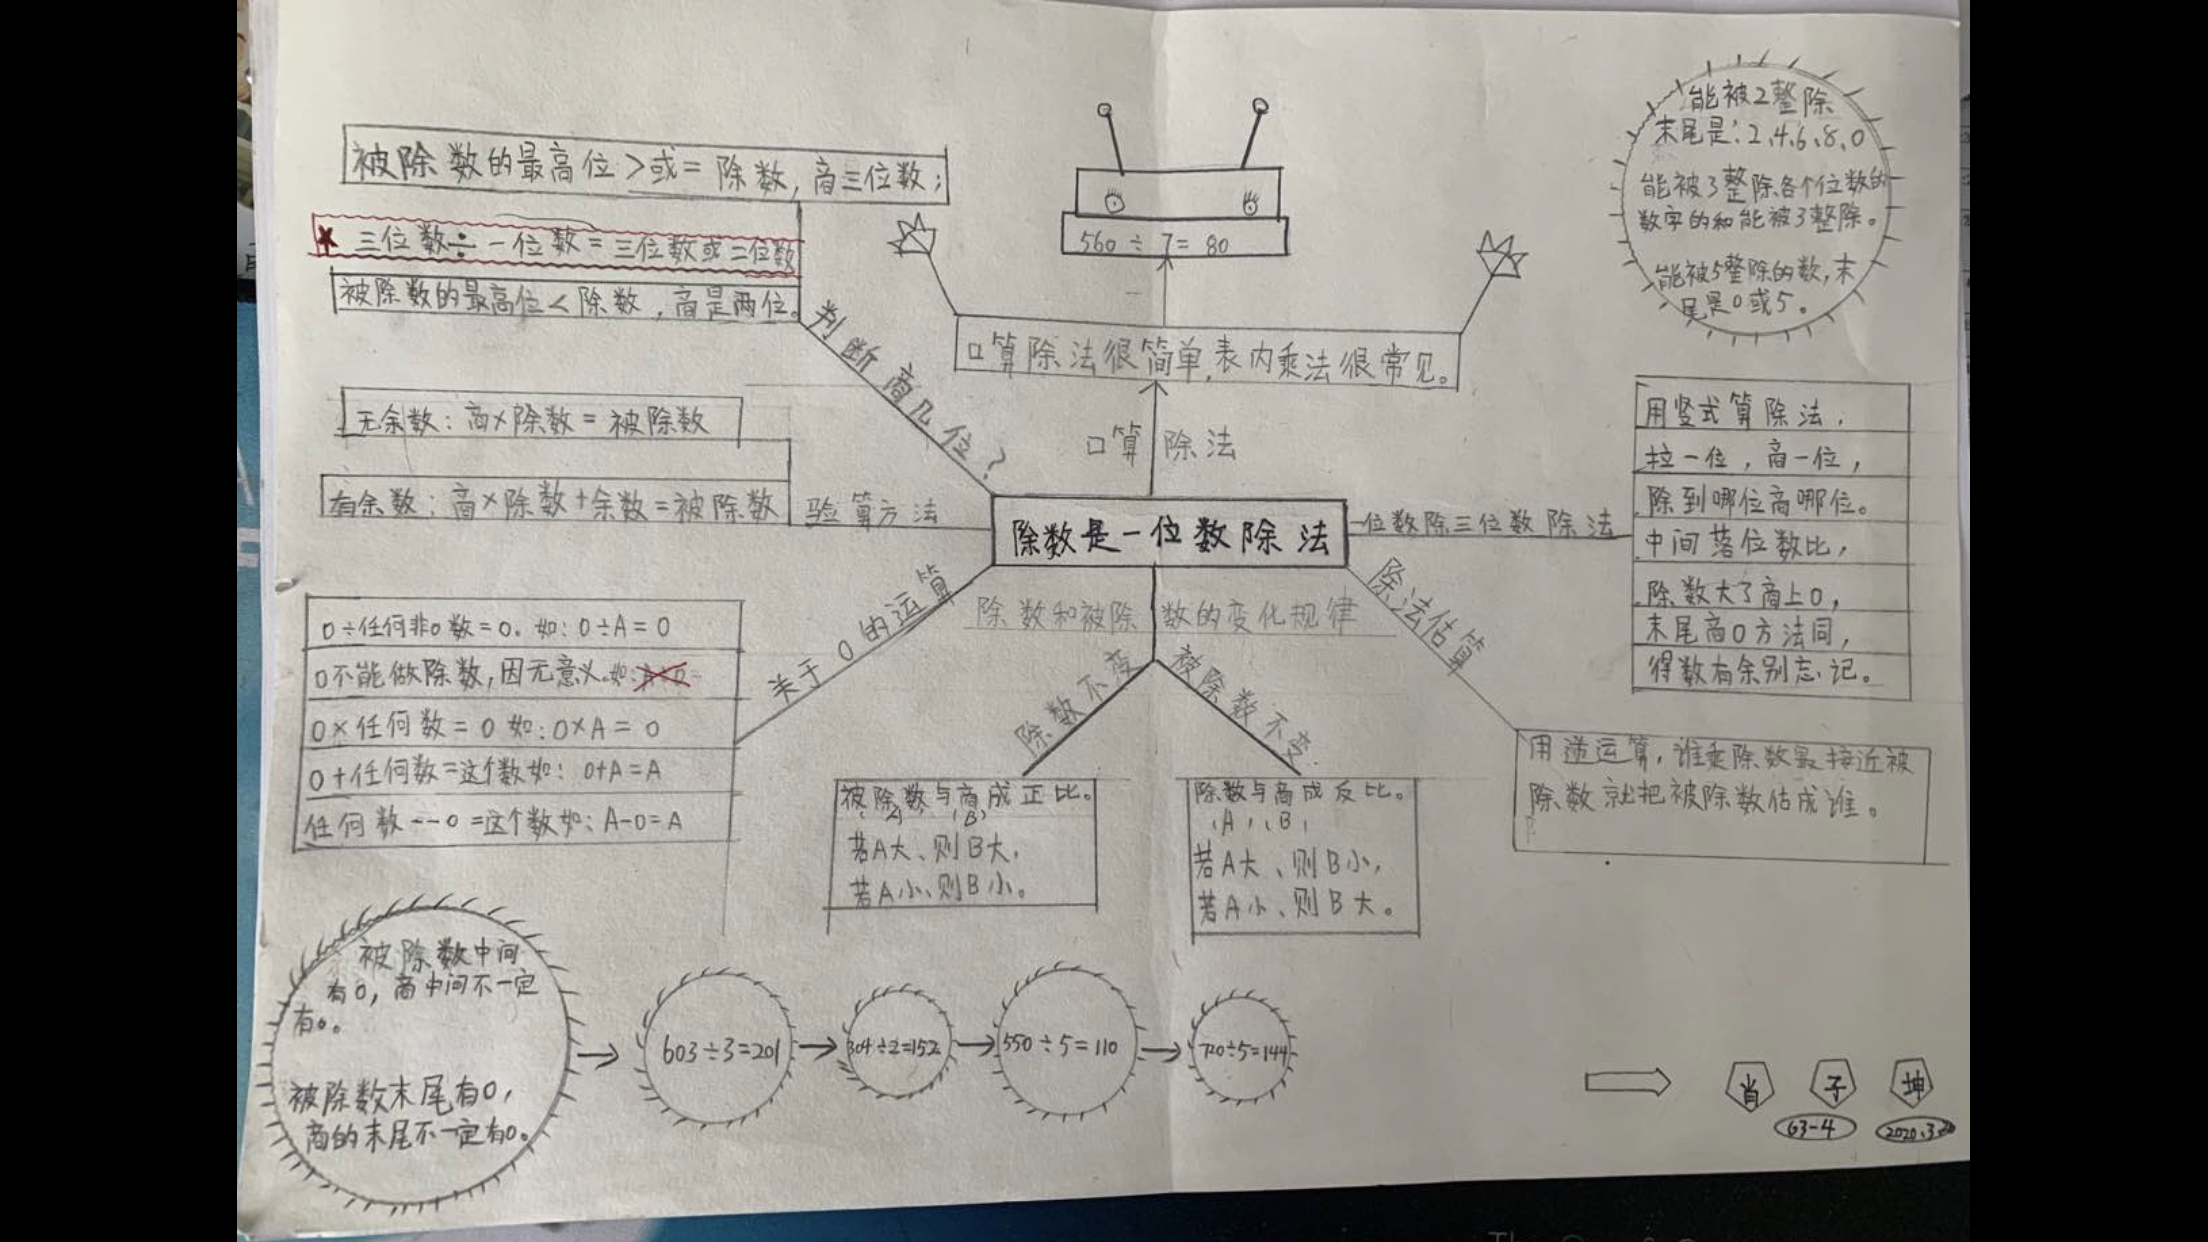 被除数的最高位>或=除数,商三位数;
三位数÷一位数=三位数或二位数
被除数的最高位<除数,商是两位。
判断商几位?
560÷7=80
口算除法很简单,表内乘法很常见。
口算除法
能被2整除
末尾是:2、4、6、8、0
能被3整除各个位数的
数字的和能被3整除。
能被5整除的数,末
尾是0或5。
无余数:商×除数=被除数
有余数:商×除数+余数=被除数
验算方法
除数是一位数除法
一位数除三位数除法
用竖式算除法,
拉一位,商一位,
除到哪位商哪位。
中间落位数比,
除数大了商上0,
末尾商0方法同,
得数有余别忘记。
关于0的运算
0÷任何非0数=0.如:0÷A=0
0不能做除数,因无意义.如:A÷0=
0×任何数=0 如:0×A=0
0+任何数=这个数如:0+A=A
任何数--0=这个数如:A-0=A
除数和被除数的变化规律
除数不变
被除数不变:
被除数与商成正比。
(A) (B)
若A大、则B大,
若A小、则B小。
除数与商成反比。
(A) (B)
若A大、则B小,
若A小、则B大。
除法估算
用逆运算,谁乘除数最接近被
除数就把被除数估成谁。
被除数中间
有0,商中间不一定
有0。
被除数末尾有0,
商的末尾不一定有0。
603÷3=201
304÷2=152
550÷5=110
720÷5=144
肖子坤
G3-4
2020.3